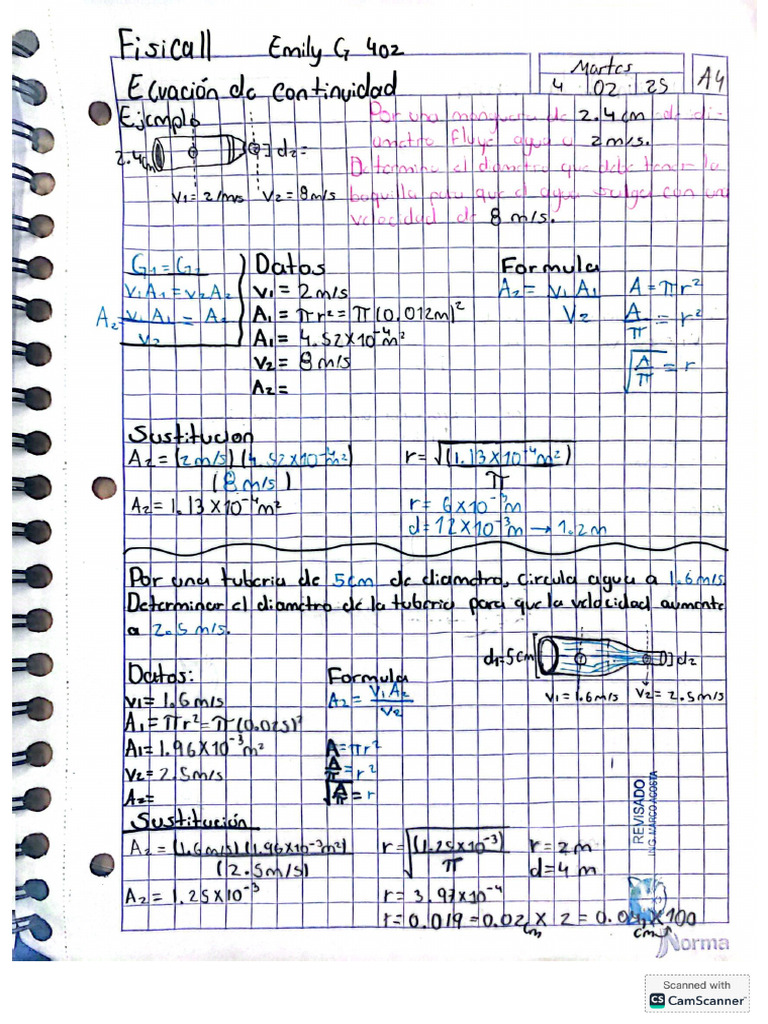 Fisica II Emily G 402
Martes
4 02 25 A4
Ecuación de continuidad
Ejemplo
Por una manguera de 2.4 cm de di-
ametro fluye agua a 2 m/s.
Determine el diametro que debe tener la
boquilla para que el agua salga con una
velocidad de 8 m/s.
2.4cm d2=
V1= 2 m/s V2= 8 m/s
G1=G2
V1A1=V2A2
A2 V1A1 = A2
V2
Datos
V1 = 2 m/s
A1 = πr² = π(0.012m)²
A1 = 4.52x10⁻⁴m²
V2 = 8 m/s
A2 =
Formula
A2 = V1A1
V2
A=πr²
A = r²
π
√A = r
π
Sustitucion
A2 = (2 m/s)(4.52x10⁻⁴m²)
(8 m/s)
A2 = 1.13x10⁻⁴m²
r = √(1.13x10⁻⁴m²)
π
r = 6x10⁻³m
d = 12x10⁻³m → 1.2m
Por una tuberia de 5cm de diametro, circula agua a 1.6 m/s
Determinar el diametro de la tuberia para que la velocidad aumente
a 2.5 m/s.
d1=5cm d2
V1=1.6m/s V2= 2.5m/s
Datos:
V1= 1.6 m/s
A1= πr²=π(0.025)²
A1= 1.96x10⁻³m²
V2= 2.5 m/s
A2=
Formula
A2 = V1A2
V2
A=πr²
A = r²
π
√A = r
π
REVISADO
ING. MARCO ACOSTA
Sustitución
A2 = (1.6m/s)(1.96x10⁻³m²)
(2.5m/s)
A2 = 1.25x10⁻³
r = √(1.25x10⁻³)
π
r = 3.97x10⁻⁴
r = 0.019 = 0.02 x 2 = 0.04 x 100
cm cm
r = 2m
d = 4 m
Norma
Scanned with
CS CamScanner